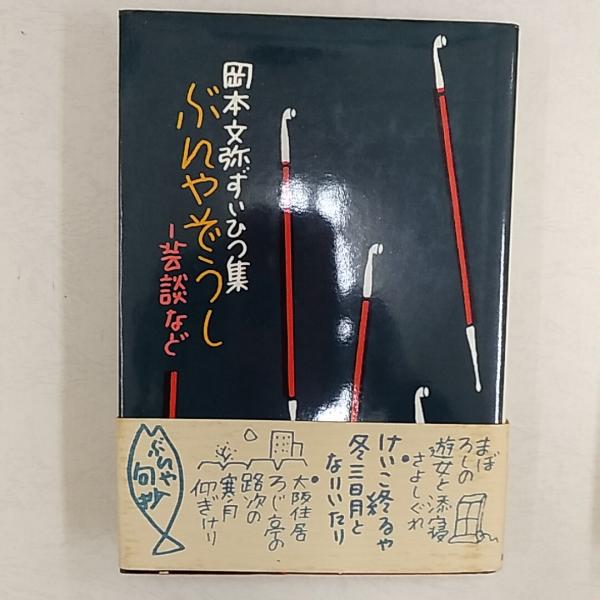 岡本文弥ずいひつ集
ぶんやぞうし
－芸談など
まぼ
ろしの
遊女と添寝
さよしぐれ
けいこ終るや
冬三日月と
なりいたり
大阪住居
ろじ亭の
路次の
寒月
仰ぎけり
ぶんや句抄